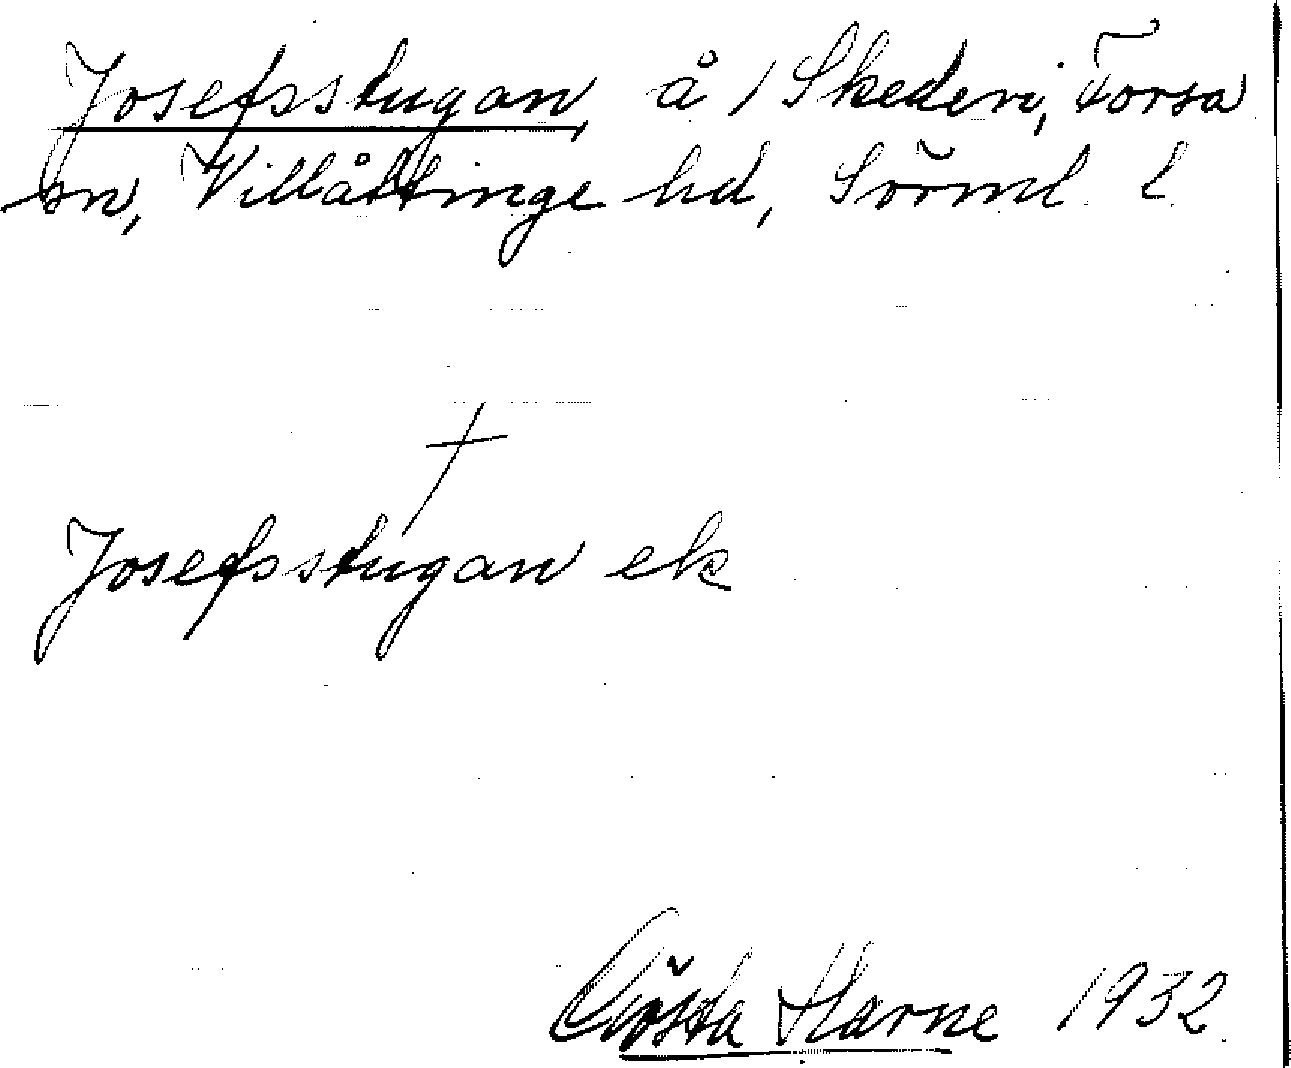 Josefsstugan, å 1 Skederi, Forsa
sn, Villåttinge hd, Sörml. l.
†
Josefsstugan ek
Gösta Harne 1932.